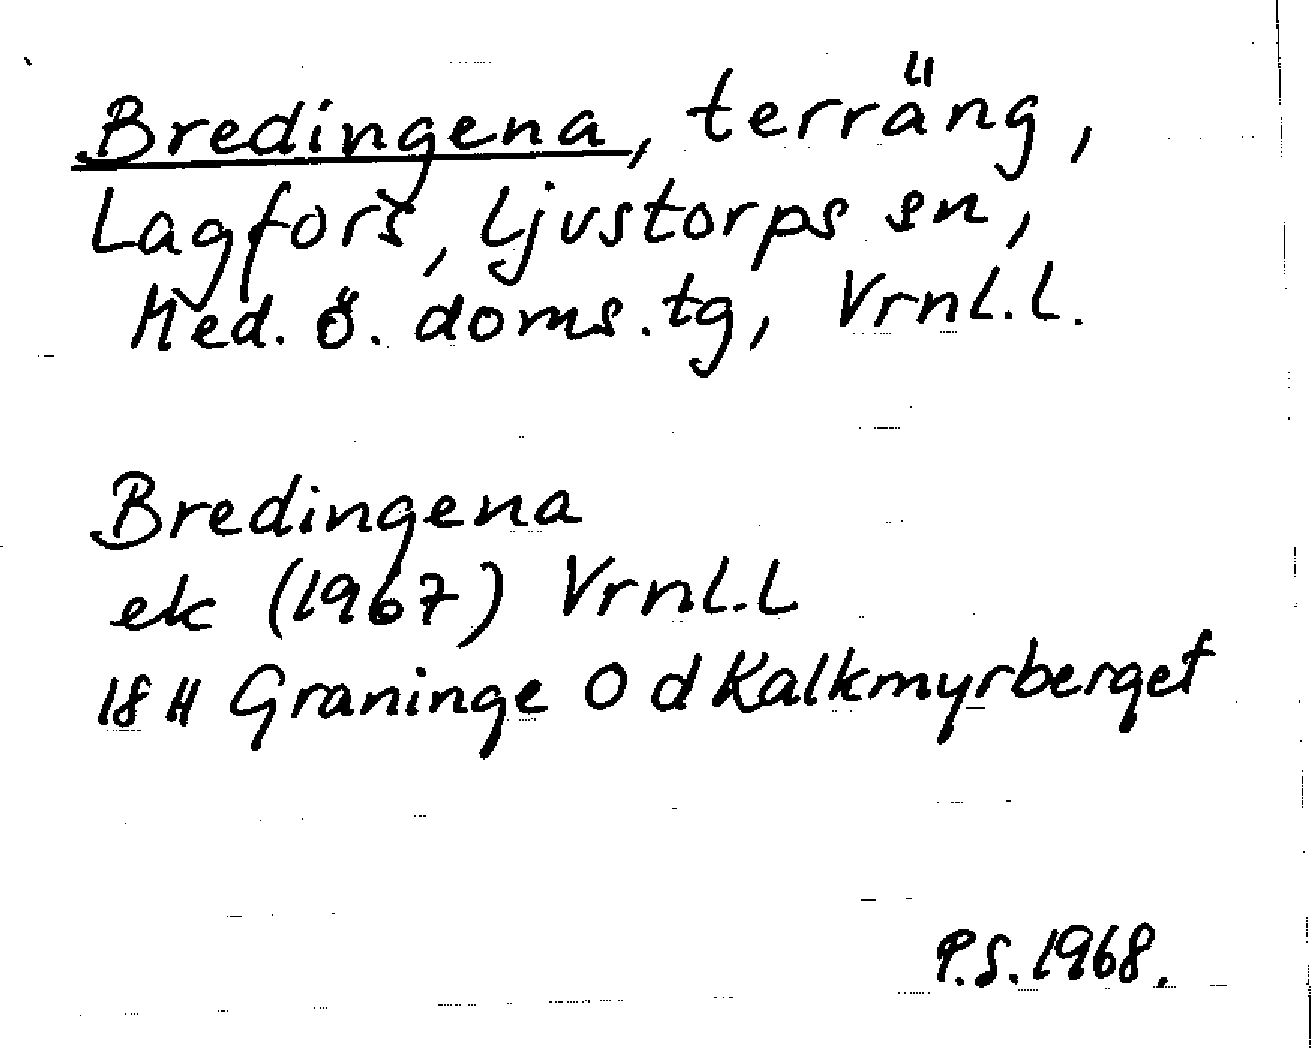 Bredingena, terräng,
Lagfors, Ljustorps sn,
Med. ö. doms.tg, Vrnl.l.
Bredingena
ek (1967) Vrnl.L
18 H Graninge O d Kalkmyrberget
P.S. 1968.